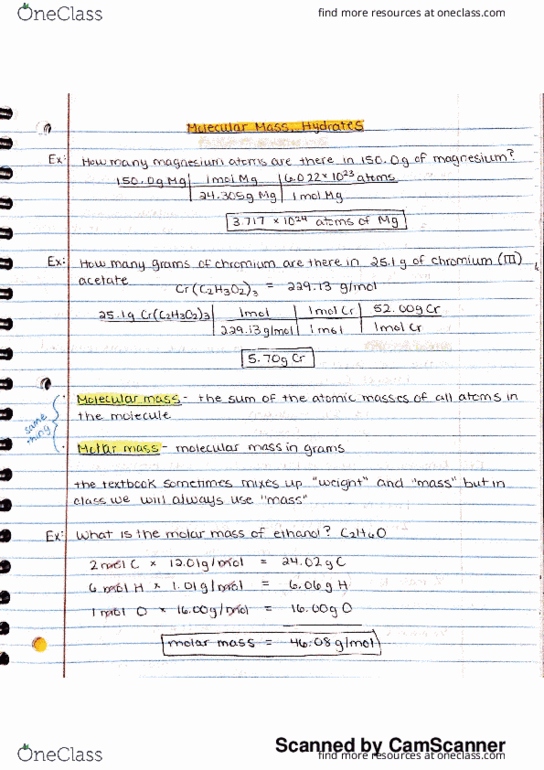 OneClass
find more resources at oneclass.com
Molecular Mass, Hydrates
Ex: How many magnesium atoms are there in 150.0g of magnesium?
150.0g Mg | 1mol Mg | 6.022 × 10²³ atoms
24.305g Mg | 1mol Mg
3.717 × 10²⁴ atoms of Mg
Ex: How many grams of chromium are there in 25.1 g of chromium (III)
acetate
Cr(C₂H₃O₂)₃ = 229.13 g/mol
25.1g Cr(C₂H₃O₂)₃ | 1mol | 1mol Cr | 52.00g Cr
229.13 g/mol | 1mol | 1mol Cr
5.70g Cr
Molecular mass - the sum of the atomic masses of all atoms in
the molecule
same thing
Molar mass - molecular mass in grams
the textbook sometimes mixes up "weight" and "mass" but in
class we will always use "mass"
Ex: What is the molar mass of ethanol? C₂H₆O
2 mol C × 12.01g/mol = 24.02g C
6 mol H × 1.01g/mol = 6.06g H
1 mol O × 16.00g/mol = 16.00g O
molar mass = 46.08 g/mol
Scanned by CamScanner
OneClass
find more resources at oneclass.com